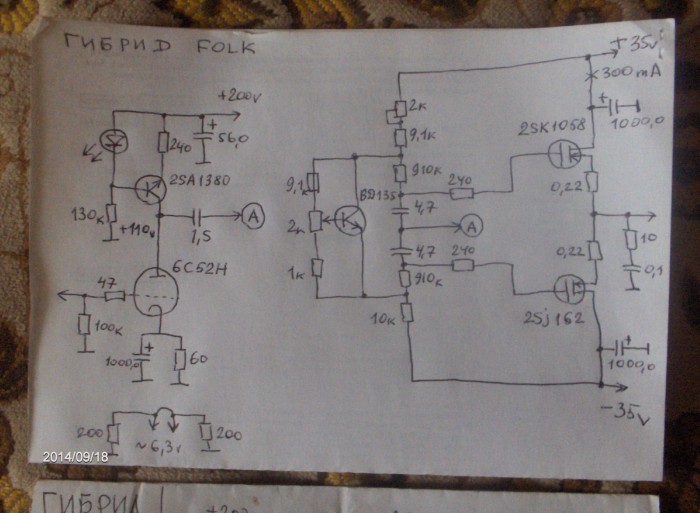 ГИБРИD FOLK
+200v
240
56,0
2SA1380
130к
+110v
1,5
A
6С52Н
47
100к
1000,0
60
200
~6,3v
200
2014/09/18
+35v
300mA
1000,0
2к
9,1к
2SK1058
910к
9,1к
BD135
240
0,22
4,7
2к
A
0,22
10
4,7
240
0,1
1к
910к
10к
2Sj162
1000,0
-35v
ГИБРИD